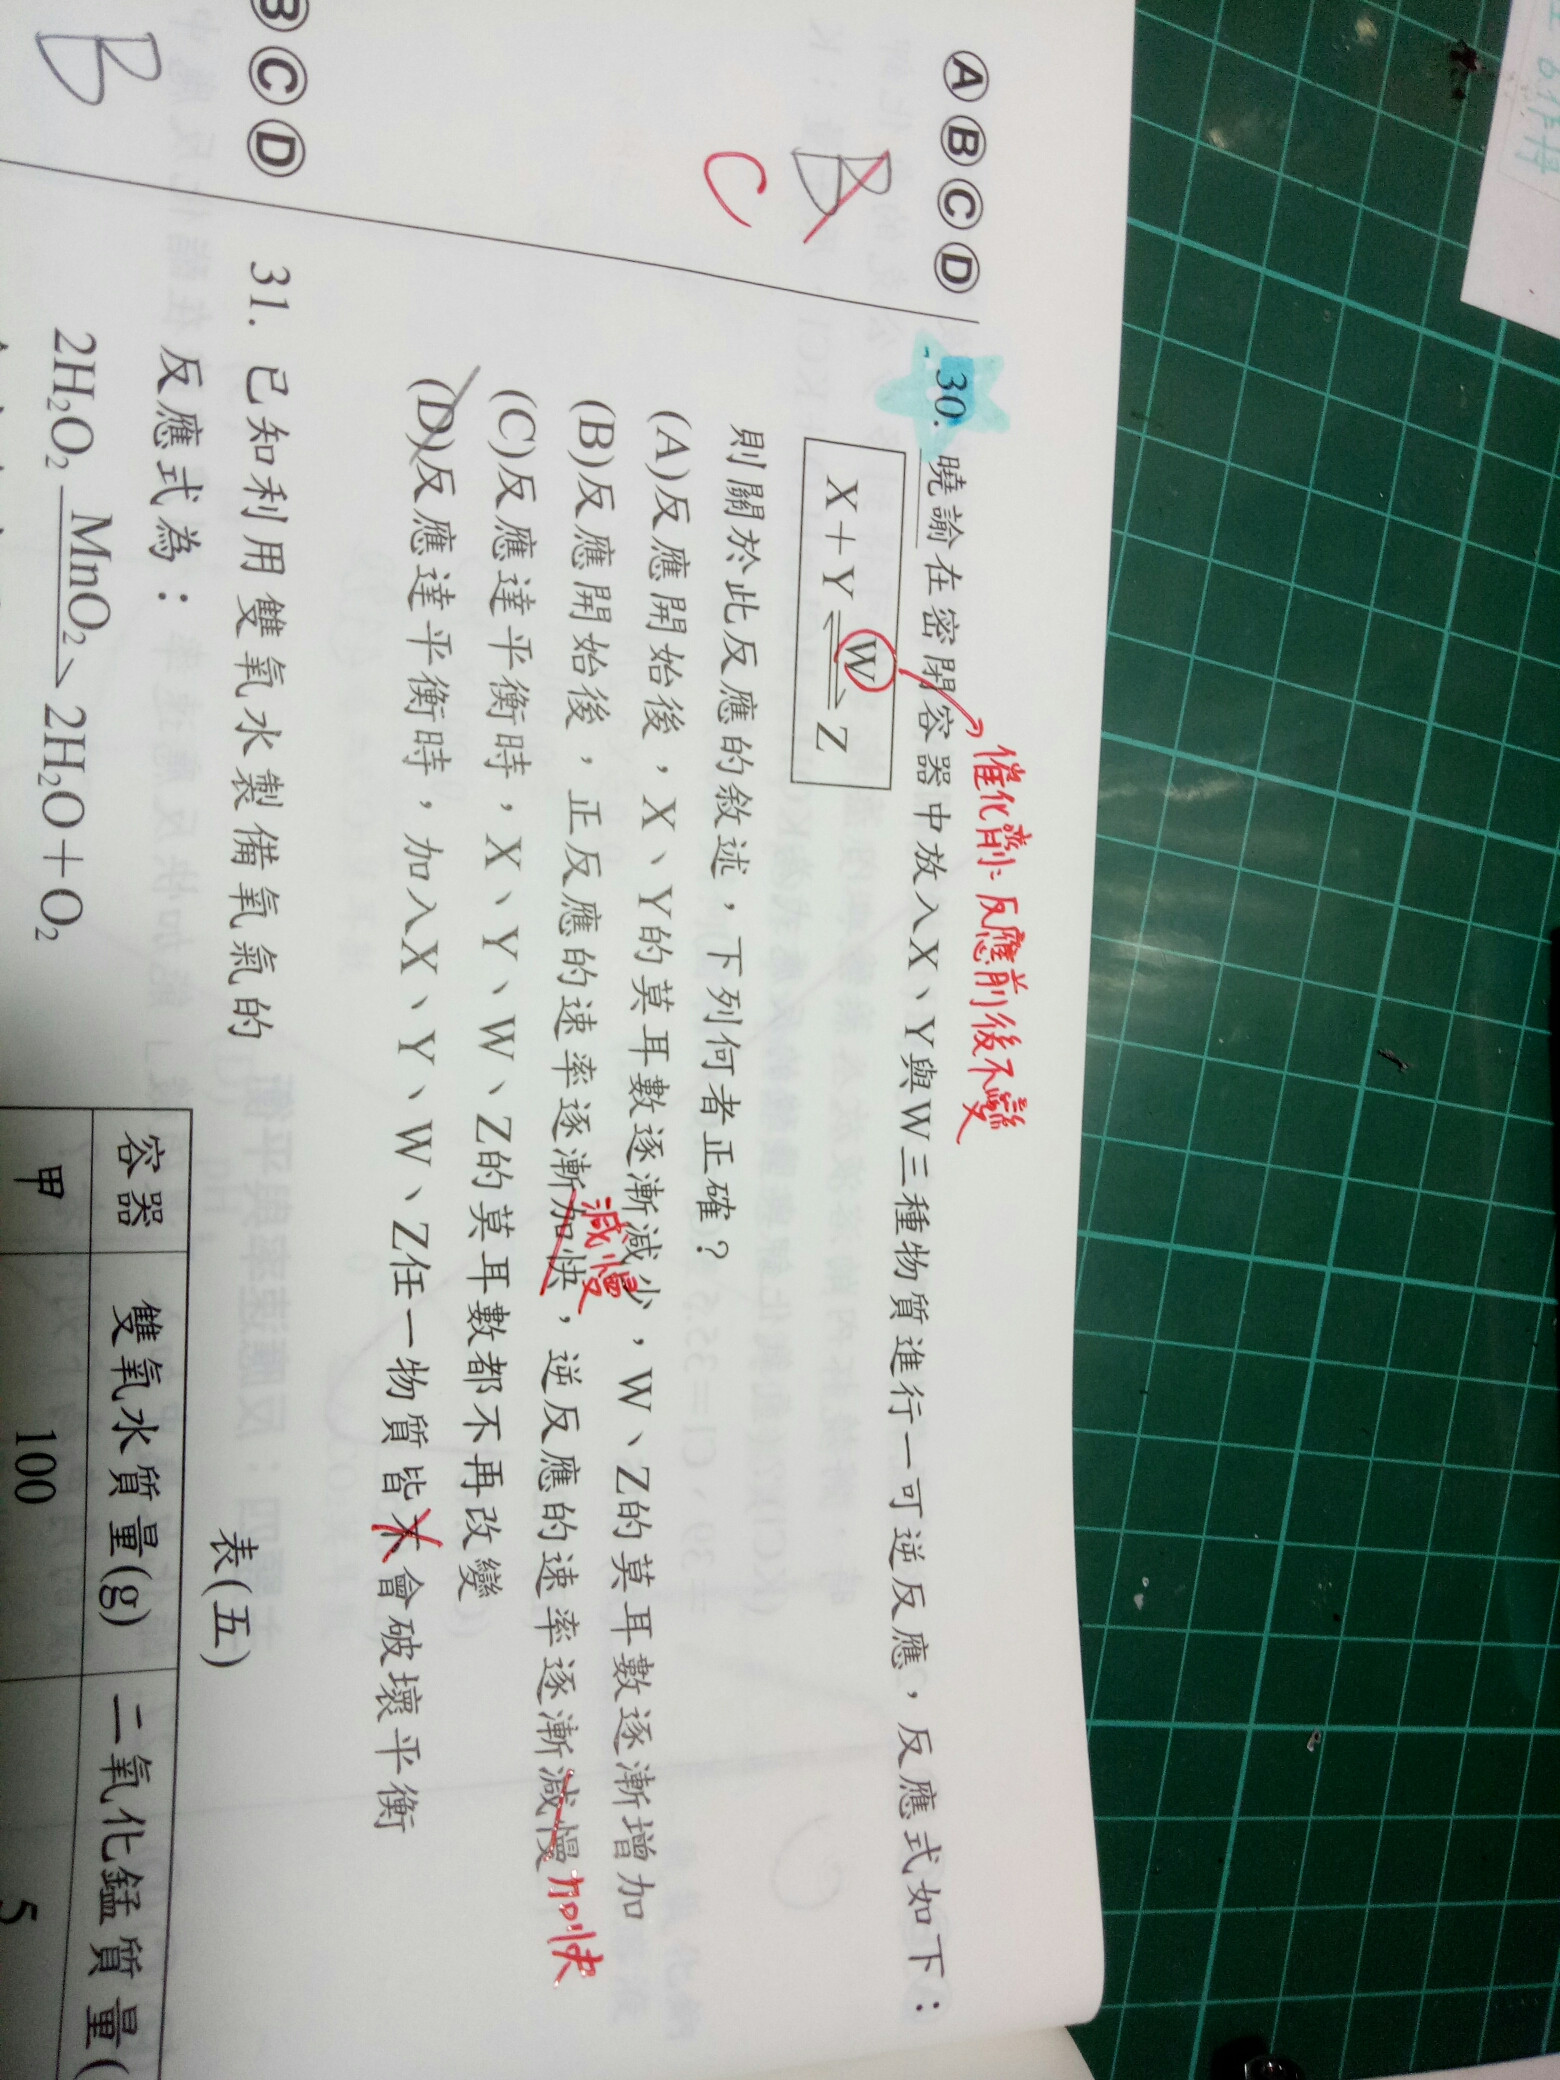 ⒶⒷⒸⒹ
B
C
30. 曉諭在密閉容器中放入X、Y與W三種物質進行一可逆反應，反應式如下：
催化劑：反應前後不變
W
X+Y⇌Z
則關於此反應的敘述，下列何者正確？
(A)反應開始後，X、Y的莫耳數逐漸減少，W、Z的莫耳數逐漸增加
減慢
(B)反應開始後，正反應的速率逐漸加快，逆反應的速率逐漸減慢 加快
(C)反應達平衡時，X、Y、W、Z的莫耳數都不再改變
(D)反應達平衡時，加入X、Y、W、Z任一物質皆不會破壞平衡
ⒷⒸⒹ
B
31. 已知利用雙氧水製備氧氣的
反應式為：
2H₂O₂ MnO₂→ 2H₂O＋O₂
表(五)
容器 雙氧水質量(g) 二氧化錳質量(
甲 100 5